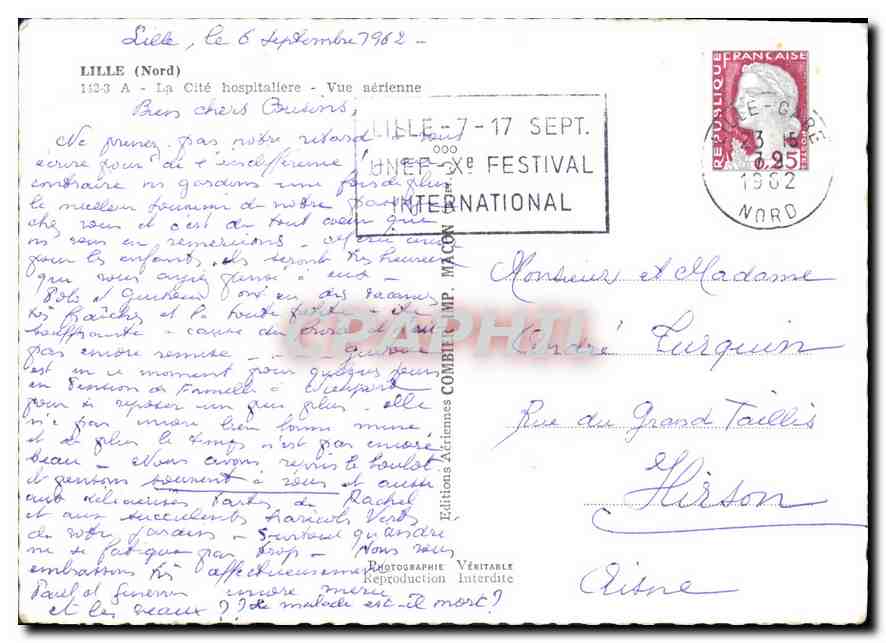 Lille, le 6 Septembre 1962 -
LILLE (Nord)
142-3 A - La Cité hospitalière - Vue aérienne
Bien chers Cousins,
Ne prenez pas notre retard à vous
écrire pour de l'indifférence au
contraire ns gardons une fois de plus
le meilleur souvenir de notre passage
chez vous et c'est de tout coeur que
ns vous en remercions - Merci aussi
pour les enfants, ils seront très heureux
que vous ayiez pensé à eux -
et ont eu des vacances
très fraîches et la toute petite a été
souffrante à cause du froid et n'est
pas encore remise -
est en ce moment pour quelques jours
en Pension de Famille à
pour se reposer un peu plus - elle
n'a pas encore bien bonne mine
et de plus le temps n'est pas encore
beau - Nous avons repris le boulot
et pensons souvent à vous et aussi
aux délicieuses tartes de Rachel
et aux succulents haricots verts
de votre jardin - Surtout qu'andré
ne se fatigue pas trop - Nous vous
embrassons très affectueusement
Paul et encore merci
et les veaux ? ? Le malade est-il mort ?
LILLE - 7 - 17 SEPT.
UNEF - Xe FESTIVAL
INTERNATIONAL
REPUBLIQUE FRANÇAISE
0,25
LILLE - GARE
1962
NORD
Editions Aériennes COMBIER IMP. MACON
CPAPHIL
Monsieur et Madame
André Turquin
Rue du Grand Taillis
Hirson
Aisne
PHOTOGRAPHIE VÉRITABLE
Reproduction Interdite